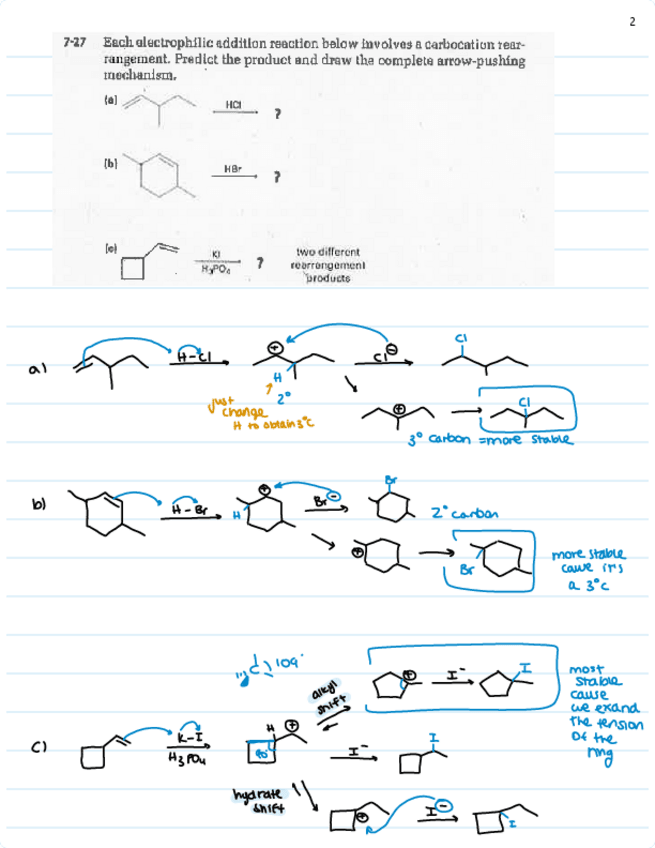 2
7-27 Each electrophilic addition reaction below involves a carbocation rear-
rangement. Predict the product and draw the complete arrow-pushing
mechanism.
(a) HCl ?
(b) HBr ?
(c) KI ?
H₃PO₄
two different
rearrangement
products
a)
H-Cl
⊕
Cl⊖
Cl
H
2°
Just
change
H to obtain 3°C
⊕
Cl
3° carbon =more stable
b)
H-Br
H
⊕
Br⊖
Br
2° carbon
⊕
Br
more stable
cause it's
a 3°C
109°
alkyl
shift
⊕
I⁻
I
most
stable
cause
we exand
the tension
of the
ring
c)
K-I
H₃PO₄
H
⊕
90°
I⁻
I
hydrate
shift
⊕
I⊖
I